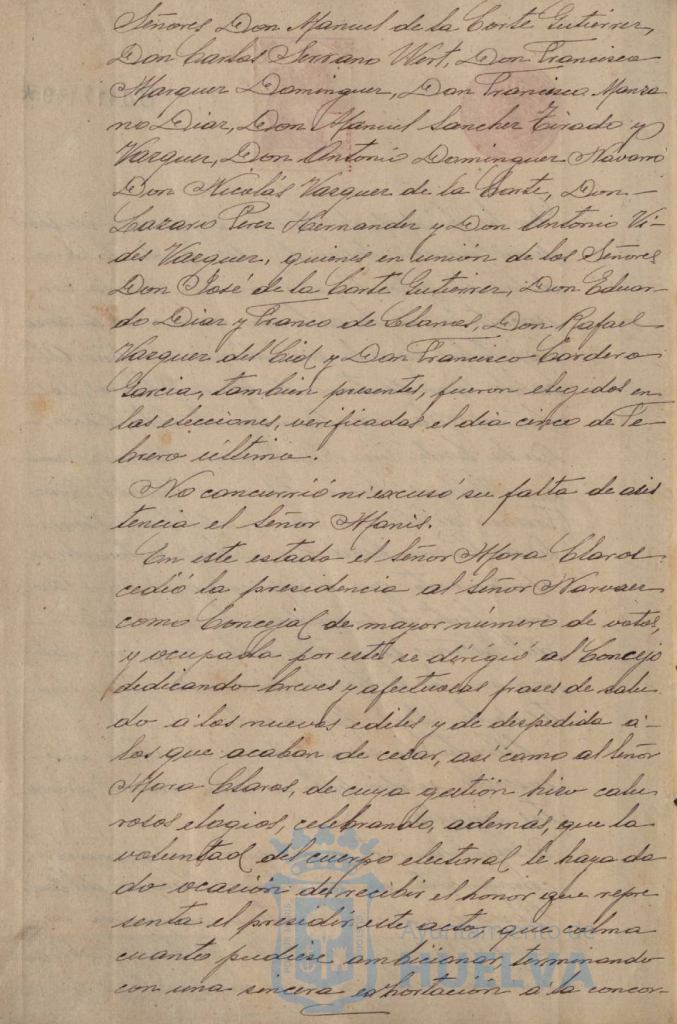 Señores Don Manuel de la Corte Gutierrez,
Don Carlos Serrano Wert, Don Francisco
Marquez Dominguez, Don Francisco Manza
no Diaz, Don Manuel Sanchez Tirado y
Vazquez, Don Antonio Dominguez Navarro
Don Nicolás Vazquez de la Corte, Don
Lazaro Perez Hernandez y Don Antonio Vi-
des Vazquez, quienes en unión de los Señores
Don José de la Corte Gutierrez, Don Eduar-
do Diaz y Franco de Llanos, Don Rafael
Vazquez del Cid y Don Francisco Cordero
Garcia, tambien presentes, fueron elegidos en
las elecciones, verificadas el dia cinco de Fe-
brero último.
No concurrió ni excusó su falta de asis
tencia el Señor Manis.
En este estado el Señor Mora Claros
cedió la presidencia al Señor Narvaez
como Concejal de mayor número de votos,
y ocupada por este se dirigió al Concejo
dedicando breves y afectuosas frases de salu
do a los nuevos ediles y de despedida a
los que acaban de cesar, así como al Señor
Mora Claros, de cuya gestión hizo calu
rosos elogios, celebrando, además, que la
voluntad del cuerpo electoral le haya da
do ocasión de recibir el honor que repre
senta el presidir este acto, que colma
cuanto pudiese ambicionar, terminando
con una sincera exhortación á la concor-
Ayuntamiento de
HUELVA